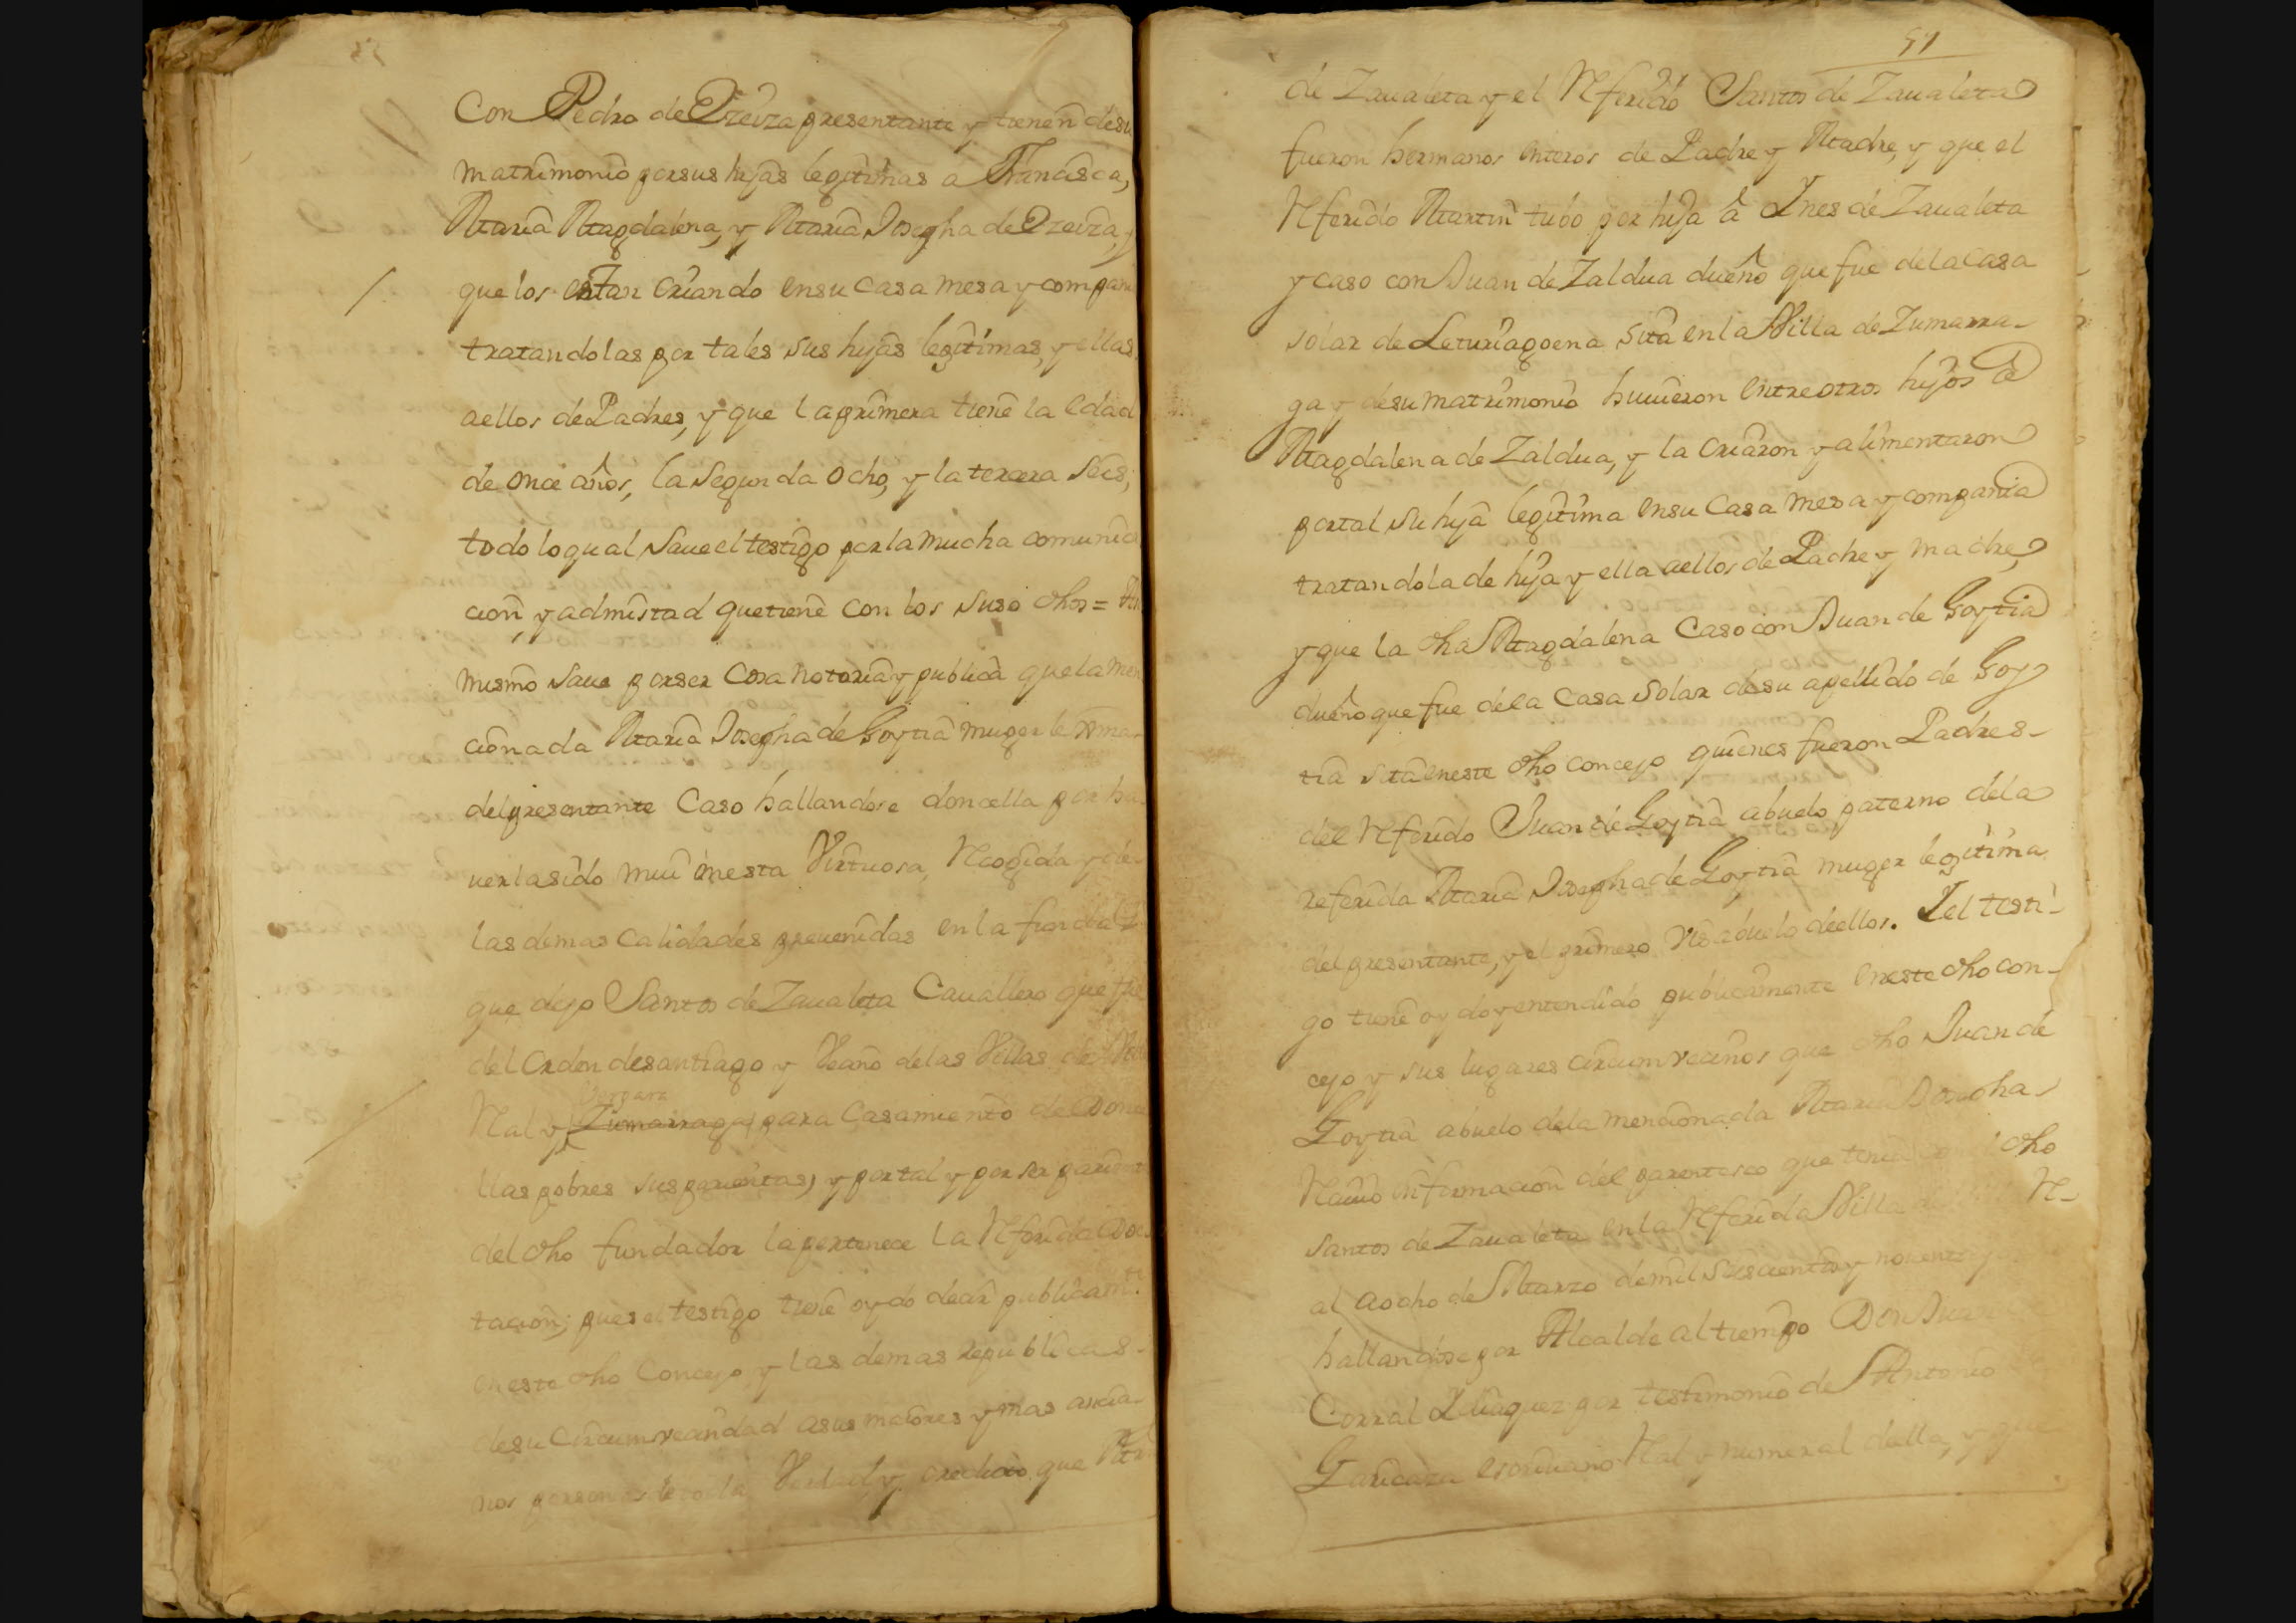 Con Pedro de Ozeiza presentante y tienen desu
matrimonio por sus hijas legitimas a Francisca,
Maria Magdalena, y Maria Josepha de Ozeiza, y
que los estan criando en su casa mesa y compañi
tratandolas por tales sus hijas legitimas, y ellas
aellos de Padres, y que la primera tiene la edad
de once años, la segunda ocho, y la tercera seis,
todo lo qual saue el testigo por la mucha comunica
cion, y admistad que tiene con los suso dhos =
mismo saue por ser cosa notoria y publica que la men
cionada Maria Josepha de Goytia muger lexma
del presentante caso hallandose doncella por ha
uer la sido mui onesta virtuosa, Recogida y de
las demas calidades preuenidas en la fundaz.n
que dejo Santos de Zaualeta Cauallero que fue
del orden de santiago y Vecino de las Villas de
Vergara
Rl al y Zumarraga, para casamiento de Donce
llas pobres sus parientas, y por tal y por ser parienta
del dho fundador la pertenece la Referida Do
tacion; pues el testigo tiene oydo decir publicamte
en este dho Concejo, y las demas republicas
de su circumvecindad a sus maiores y mas ancia-
nos personas de toda Verdad, y credito que
51
de Zaualeta y el Referido Santos de Zaualeta
fueron hermanos enteros de Padre y Madre, y que el
Referido Martin tubo por hija a Ines de Zaualeta
y caso con Juan de Zaldua dueño que fue de la casa
solar de Leturiagoena sita en la Villa de Zumarra-
ga y de su matrimonio huuieron entre otros hijos a
Magdalena de Zaldua, y la criaron y alimentaron
por tal su hija legitima en su casa mesa y compania
tratandola de hija y ella aellos de Padre y madre,
y que la dha Magdalena Caso con Juan de Goytia
dueño que fue de la casa solar de su apellido de Goy
tia sita en este dho concejo quienes fueron Padres-
del Referido Juan de Goytia abuelo paterno de la
referida Maria Josepha de Goytia muger legitima
del presentante, y el primero Visabuelo de ellos. Y el testi-
go tiene oydo y entendido publicamente en este dho con-
cejo y sus lugares circumvecinos que dho Juan de
Goytia abuelo de la mencionada Maria Josepha
Reciuio informacion del parentesco que tenia con dho
Santos de Zaualeta en la Referida Villa de R-
al a ocho de Marzo de mil seiscientos y nouenta y
hallandose por Alcalde al tiempo Don Juan
Corral Ydiaquez por testimonio de Antonio
Garicaza escriuano Rl al y numeral della, y que